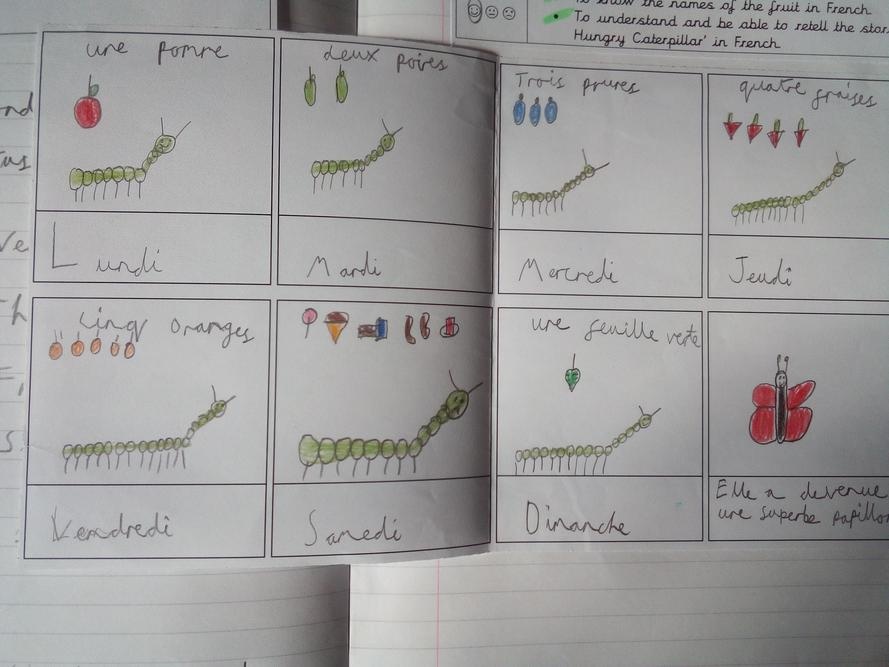 To know the names of the fruit in French
To understand and be able to retell the
Hungry Caterpillar' in French
une pomre
deux poires
Trois prures
quatre fraises
Lundi
Mardi
Mercredi
Jeudi
cinq oranges
une feuille verte
Vendredi
Samedi
Dimanche
Elle a devenue
une superbe papillon